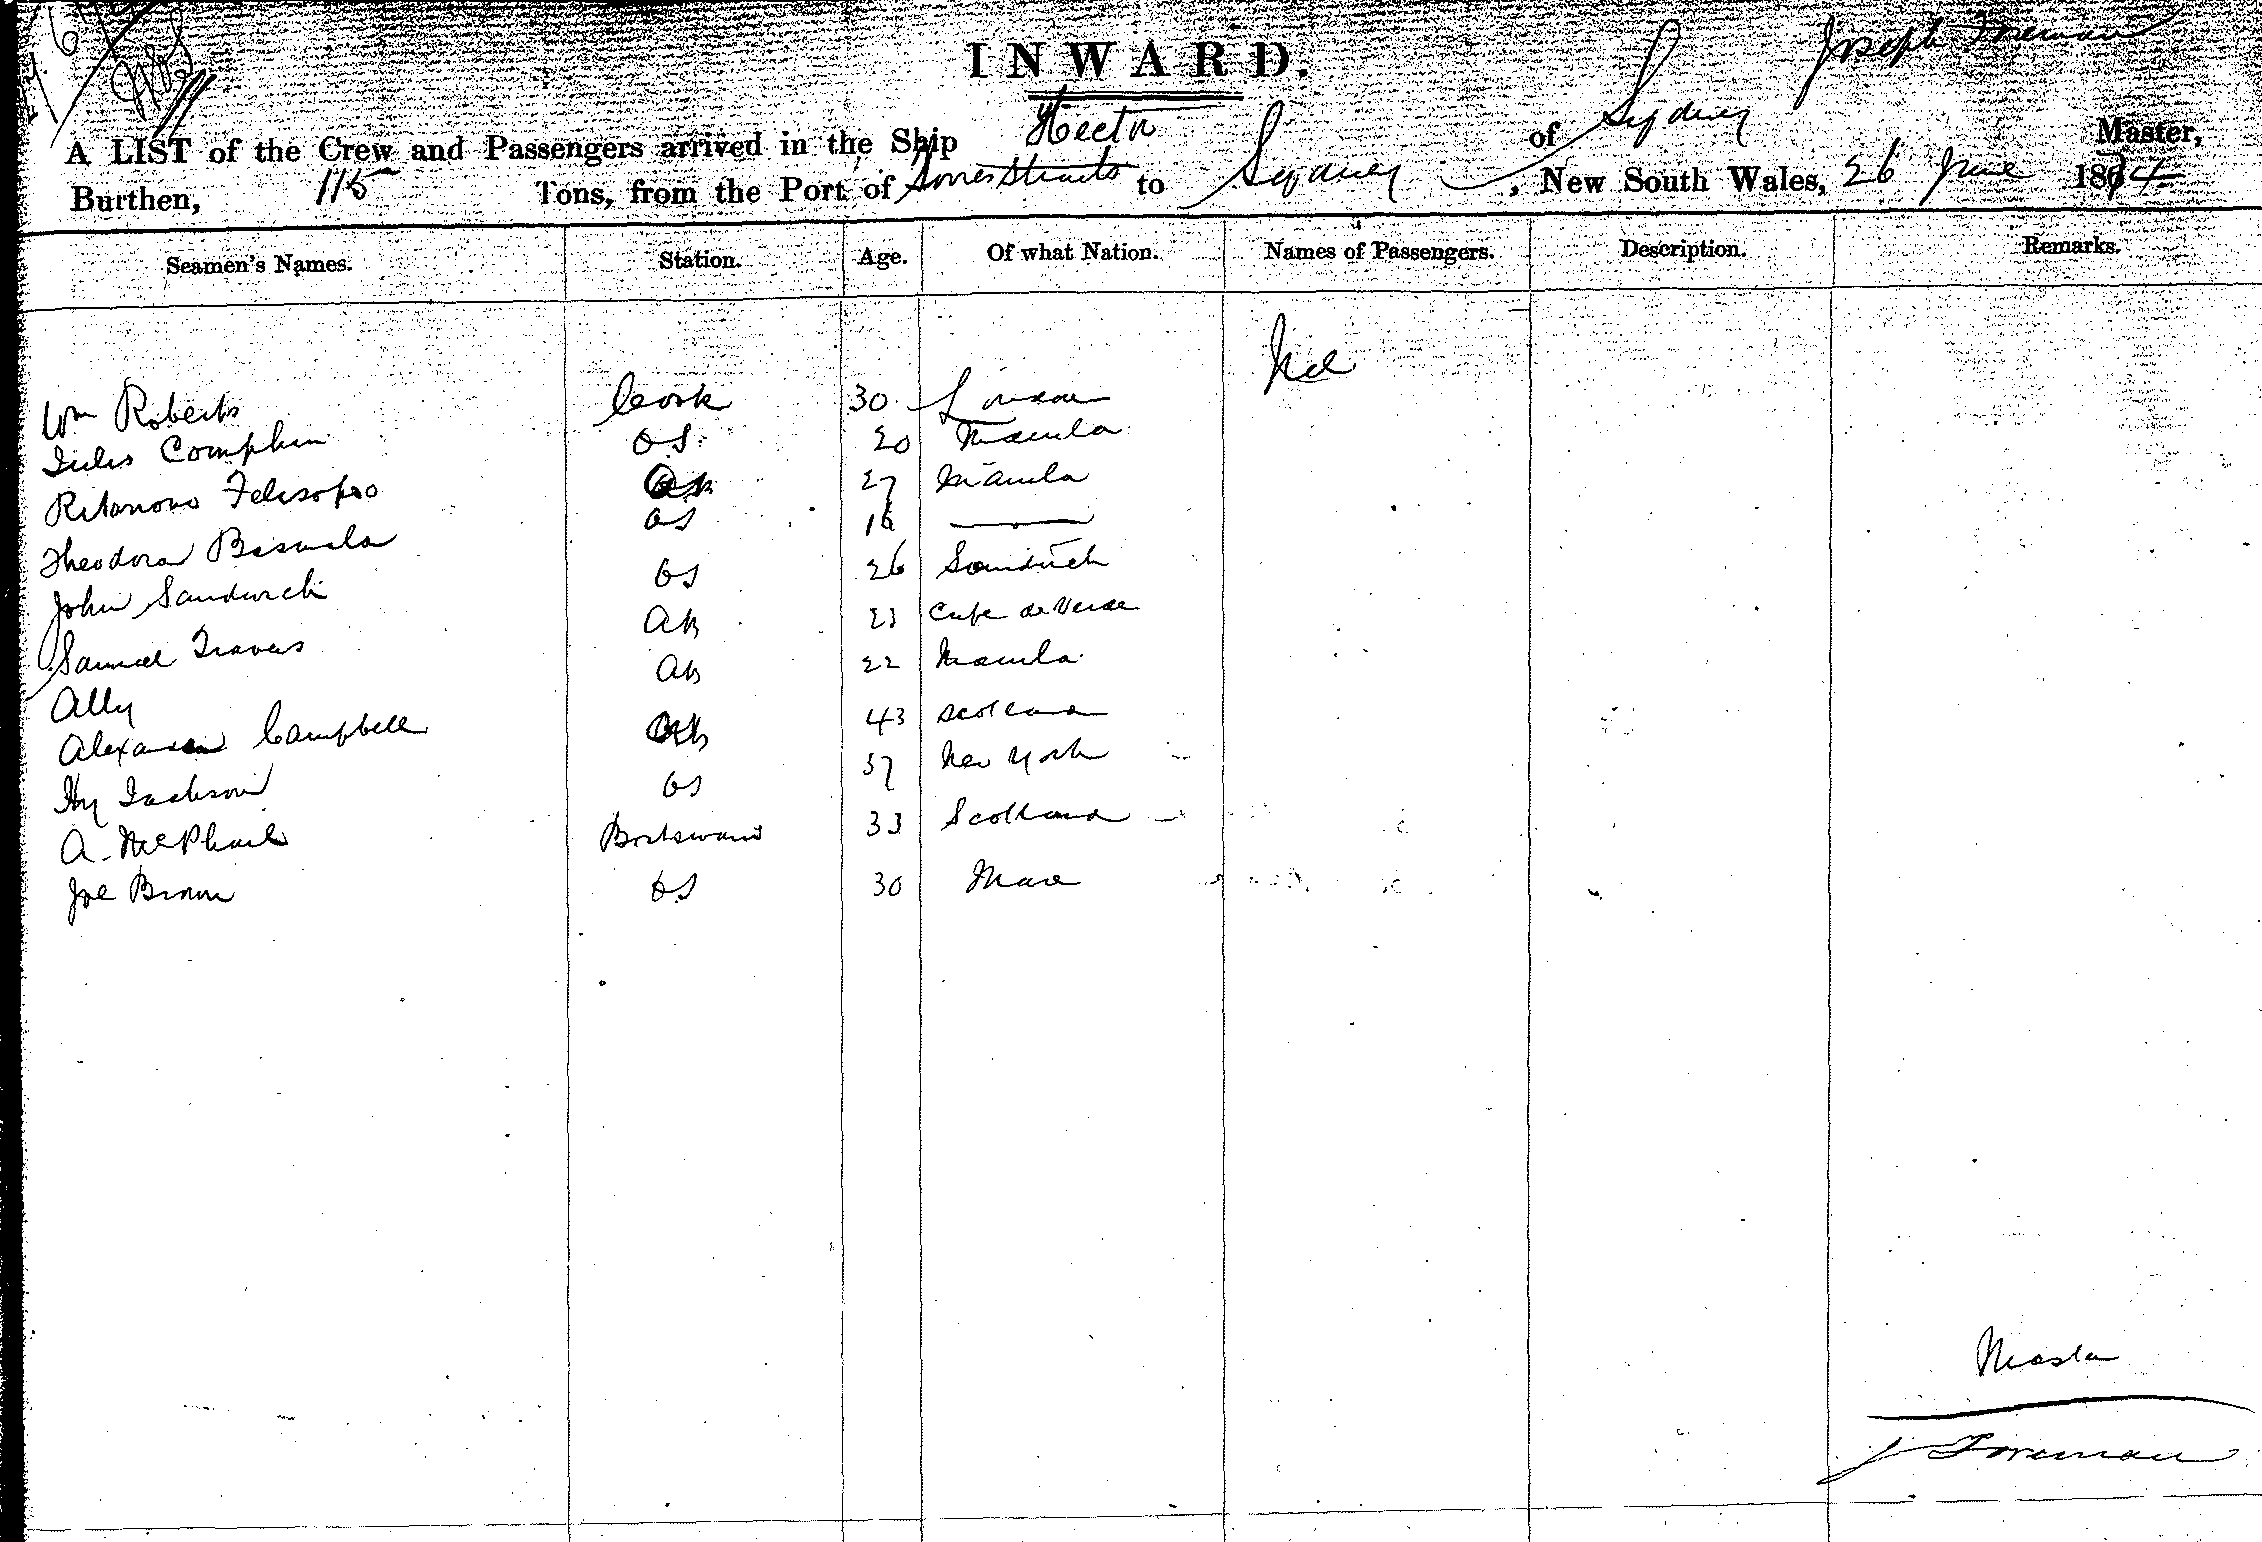 INWARD.
Joseph Foreman
A LIST of the Crew and Passengers arrived in the Ship Hector of Sydney Master,
Burthen, 115 Tons, from the Port of Torres Straits to Sydney, New South Wales, 26 June 1874
Seamen's Names. Station. Age. Of what Nation. Names of Passengers. Description. Remarks.
Nil
Wm Roberts Cook 30 London
Jules OS 20 Manila
27 Manila
Theodora OS 16 ———
John Sandwich OS 26 Sandwich
Samuel Travers AB 23 Cape de Verde
Ally AB 22 Manila
Alexander Campbell AB 43 Scotland
Hy Jackson OS 37 New York
A. McPhail Boatswain 33 Scotland
Joe Brown OS 30 Mare
Master
J Foreman